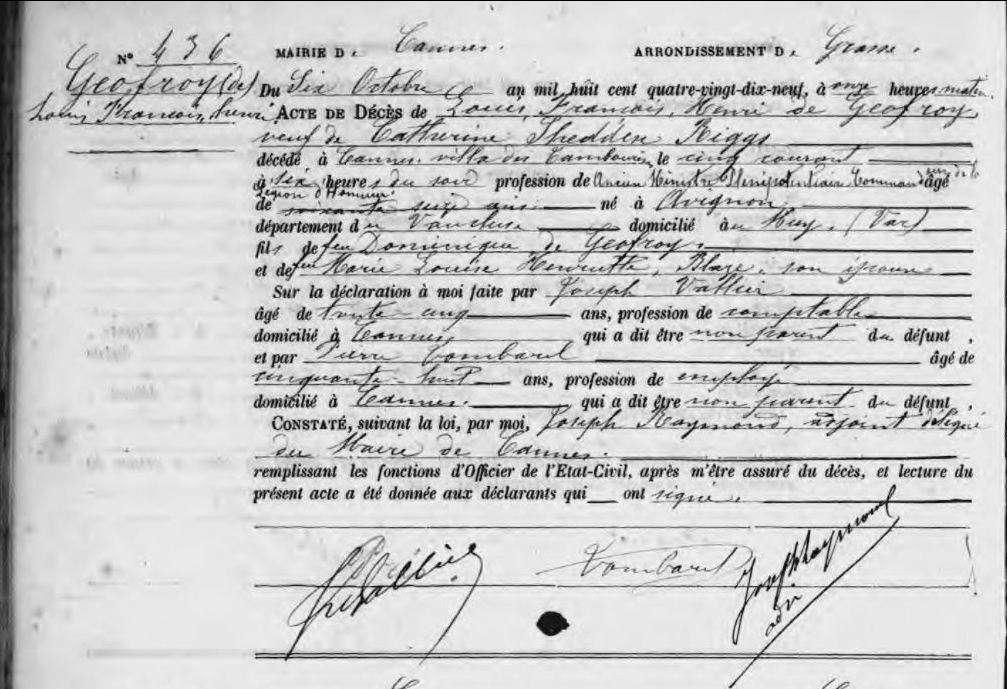 N° 436 MAIRIE D. Cannes. ARRONDISSEMENT D. Grasse.
Geofroy (de)
Louis François, Henri
Du Six Octobre an mil huit cent quatre-vingt-dix-neuf, à onze heures matin
ACTE DE DÉCÈS de Louis, François, Henri de Geofroy
veuf de Catherine Shedden Riggs
décédé à Cannes, villa des le cinq courant
à six heures du soir profession de Ancien Ministre Plénipotentiaire, Command eur de la âgé
Légion d'Honneur
de soixante seize ans né à Avignon
département du Vaucluse domicilié au Muy, (Var)
fils de feu Dominique de Geofroy,
et de feu Marie Louise Henriette, Blaze, son épouse
Sur la déclaration à moi faite par Joseph Vallier
âgé de trente cinq ans, profession de comptable
domicilié à Cannes, qui a dit être non parent du défunt,
et par Pierre Tombarel âgé de
cinquante-huit ans, profession de employé
domicilié à Cannes. qui a dit être non parent du défunt,
CONSTATÉ, suivant la loi, par moi, Joseph Raymond, adjoint délégué
du Maire de Cannes.
remplissant les fonctions d'Officier de l'Etat-Civil, après m'être assuré du décès, et lecture du
présent acte a été donnée aux déclarants qui ont signé.
Tombarel Joseph Raymond
adj